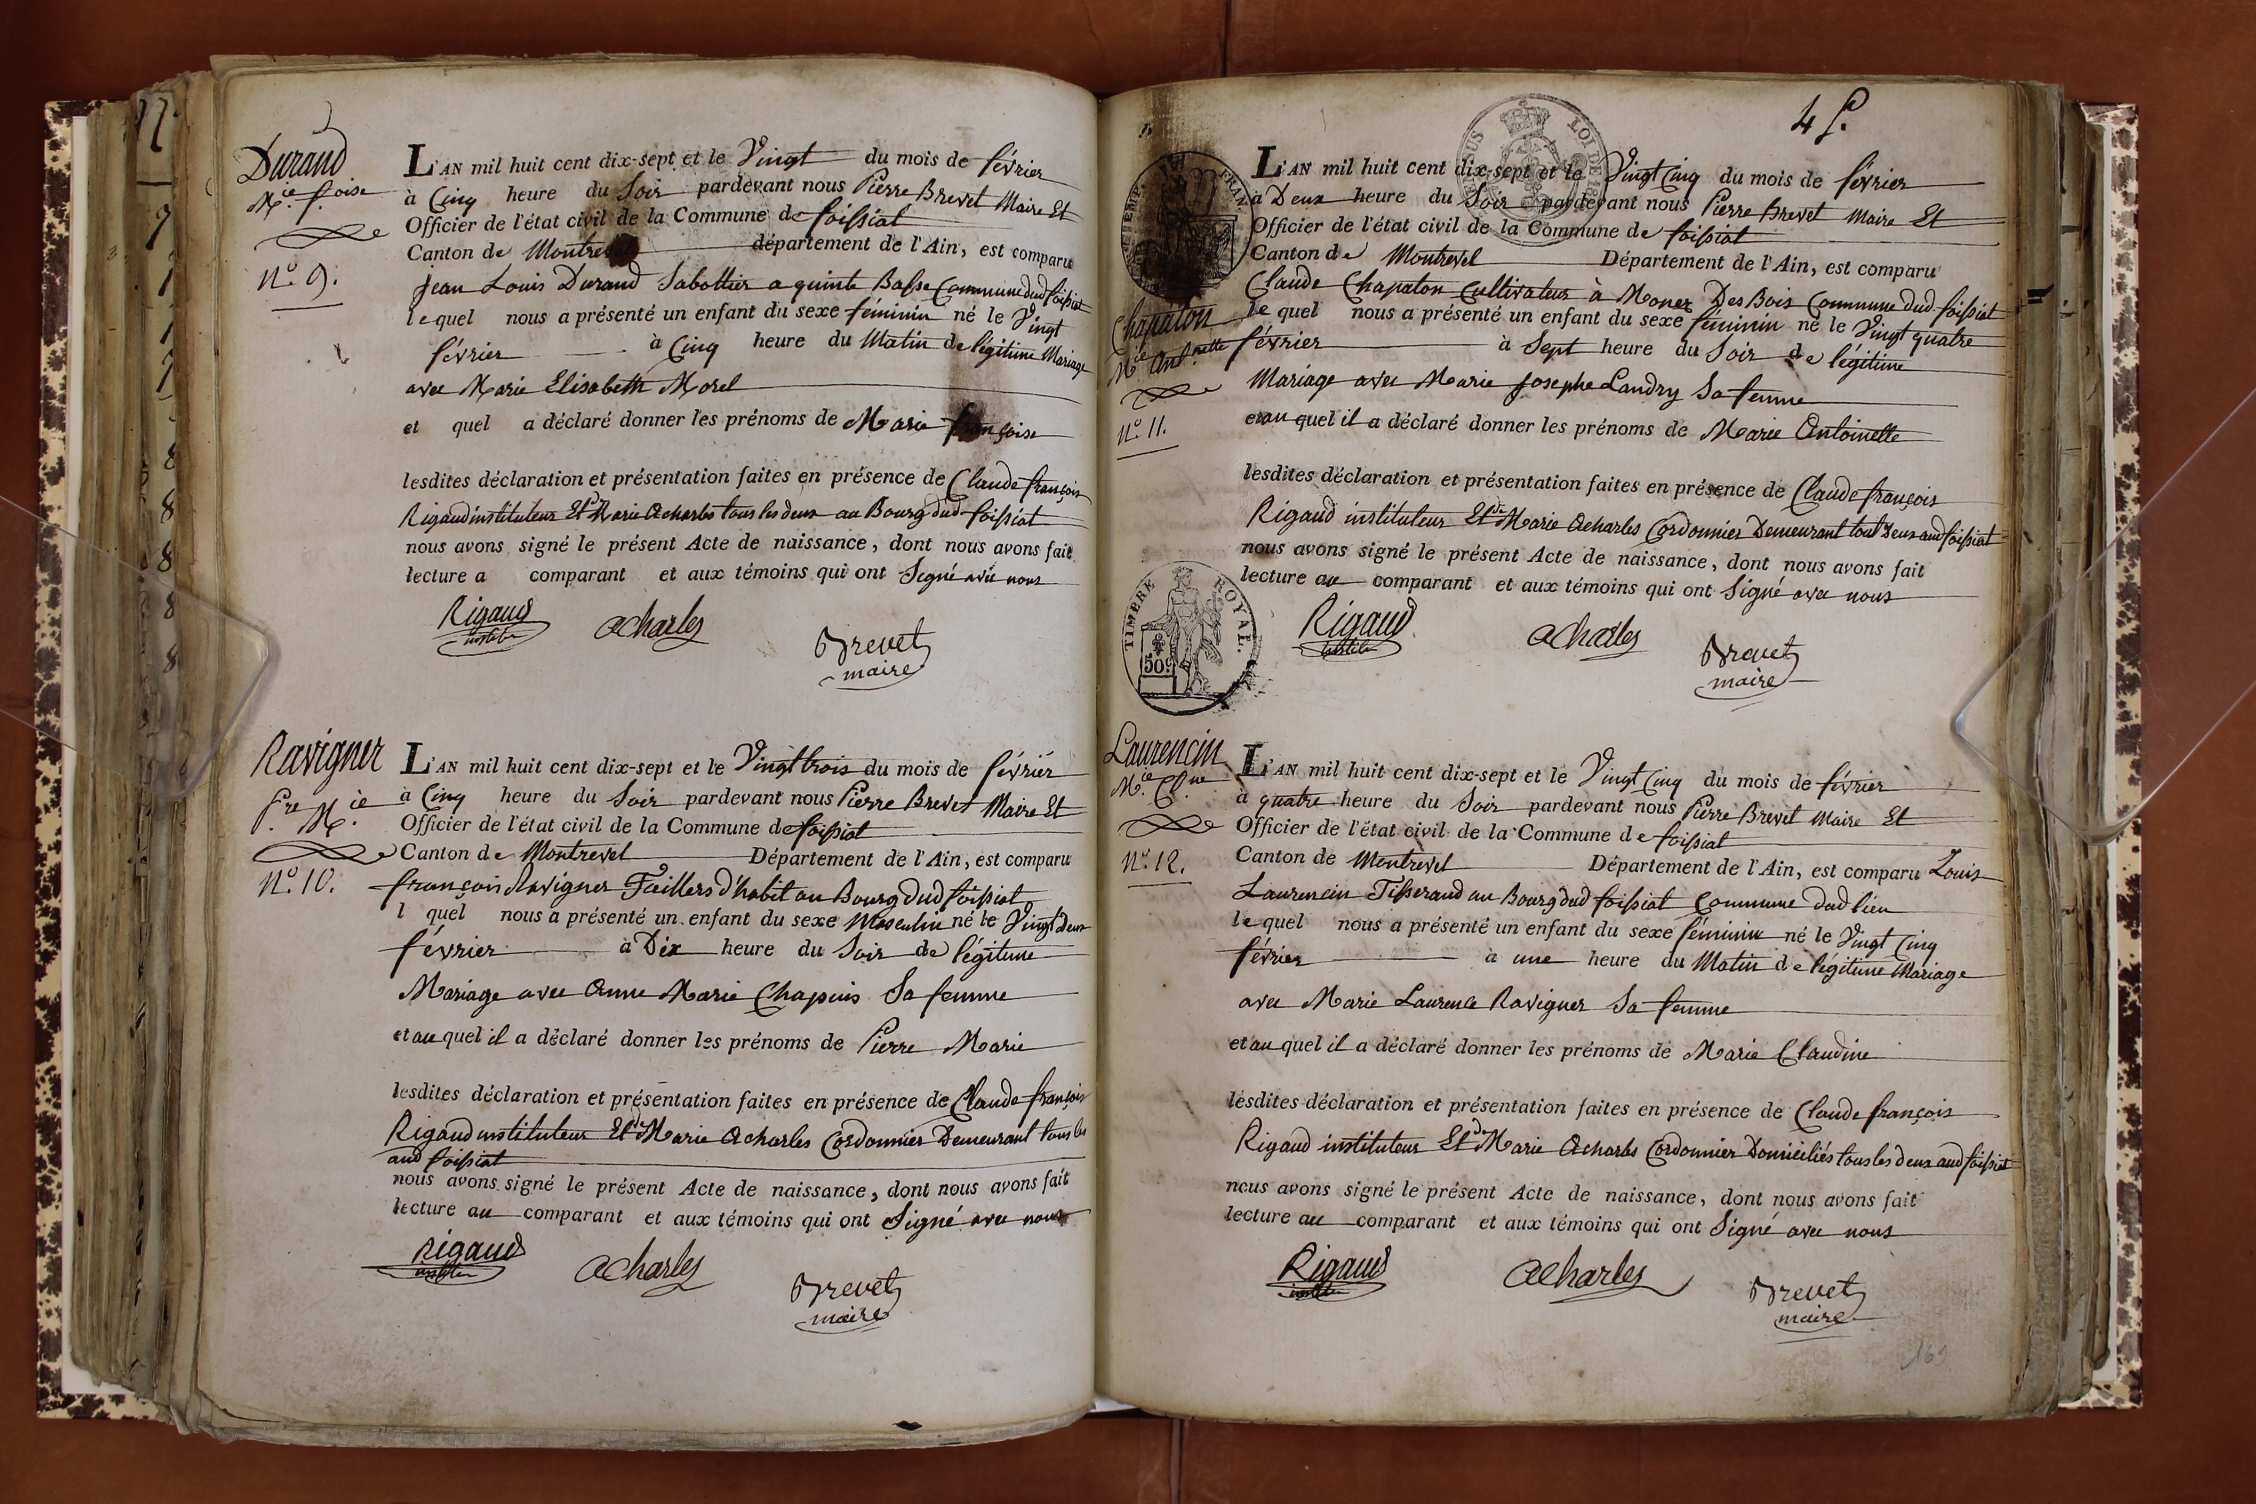 Durand
M.ie f.oise
N.o 9.
L'AN mil huit cent dix-sept et le Vingt du mois de février
à Cinq heure du Soir pardevant nous Pierre Brevet Maire Et
Officier de l'état civil de la Commune de foissiat
Canton de Montrevel département de l'Ain, est comparu
jean Louis Durand Sabottier a quinte Basse Commune dud foissiat
lequel nous a présenté un enfant du sexe féminin né le Vingt
février à Cinq heure du Matin de légitime Mariage
avec Marie Elisabeth Morel
et quel a déclaré donner les prénoms de Marie françoise
lesdites déclaration et présentation faites en présence de Claude françois
Rigaud instituteur Et de Marie Acharles tous les deux au Bourg dud foissiat
nous avons signé le présent Acte de naissance, dont nous avons fait
lecture a comparant et aux témoins qui ont Signé avec nous
Rigaud
Acharles
Brevet
maire
Ravigner
P.re M.ie
N.o 10.
L'AN mil huit cent dix-sept et le Vingt trois du mois de février
à Cinq heure du Soir pardevant nous Pierre Brevet Maire Et
Officier de l'état civil de la Commune de foissiat
Canton de Montrevel Département de l'Ain, est comparu
françois Ravigner Taillers d'habit au Bourg dud foissiat
l quel nous a présenté un enfant du sexe Masculin né le Vingt Deux
février à Dix heure du Soir de légitime
Mariage avec Anne Marie Chapuis Sa femme
et au quel il a déclaré donner les prénoms de Pierre Marie
lesdites déclaration et présentation faites en présence de Claude françois
Rigaud instituteur Et de Marie Acharles Cordonnier Demeurant tous les
aud foissiat
nous avons signé le présent Acte de naissance, dont nous avons fait
lecture au comparant et aux témoins qui ont Signé avec nous
Rigaud
Acharles
Brevet
maire
4 f.
LOI DE
FRAN
Chapaton
M.ie Ant.nette
N.o 11.
L'AN mil huit cent dix-sept et le Vingt Cinq du mois de février
à Deux heure du Soir pardevant nous Pierre Brevet Maire Et
Officier de l'état civil de la Commune de foissiat
Canton de Montrevel Département de l'Ain, est comparu
Claude Chapaton Cultivateur à Monex Des Bois Commune dud foissiat
le quel nous a présenté un enfant du sexe féminin né le Vingt quatre
février à Sept heure du Soir de légitime
Mariage avec Marie Josephe Landry Sa femme
et au quel il a déclaré donner les prénoms de Marie Antoinette
lesdites déclaration et présentation faites en présence de Claude françois
Rigaud instituteur Et de Marie Acharles Cordonnier Demeurant tout Deux aud foissiat
nous avons signé le présent Acte de naissance, dont nous avons fait
lecture au comparant et aux témoins qui ont Signé avec nous
TIMBRE ROYAL.
50c
Rigaud
Acharles
Brevet
maire
Laurencin
M.ie Cl.ne
N.o 12.
L'AN mil huit cent dix-sept et le Vingt Cinq du mois de février
à quatre heure du Soir pardevant nous Pierre Brevet Maire Et
Officier de l'état civil de la Commune de foissiat
Canton de Montrevel Département de l'Ain, est comparu Louis
Laurencin Tisserand au Bourg dud foissiat Commune dud lieu
le quel nous a présenté un enfant du sexe féminin né le Vingt Cinq
février à une heure du Matin de légitime Mariage
avec Marie Laurence Ravigner Sa femme
et au quel il a déclaré donner les prénoms de Marie Claudine
lesdites déclaration et présentation faites en présence de Claude françois
Rigaud instituteur Et de Marie Acharles Cordonnier Domiciliés tous les deux aud foissiat
nous avons signé le présent Acte de naissance, dont nous avons fait
lecture au comparant et aux témoins qui ont Signé avec nous
Rigaud
Acharles
Brevet
maire